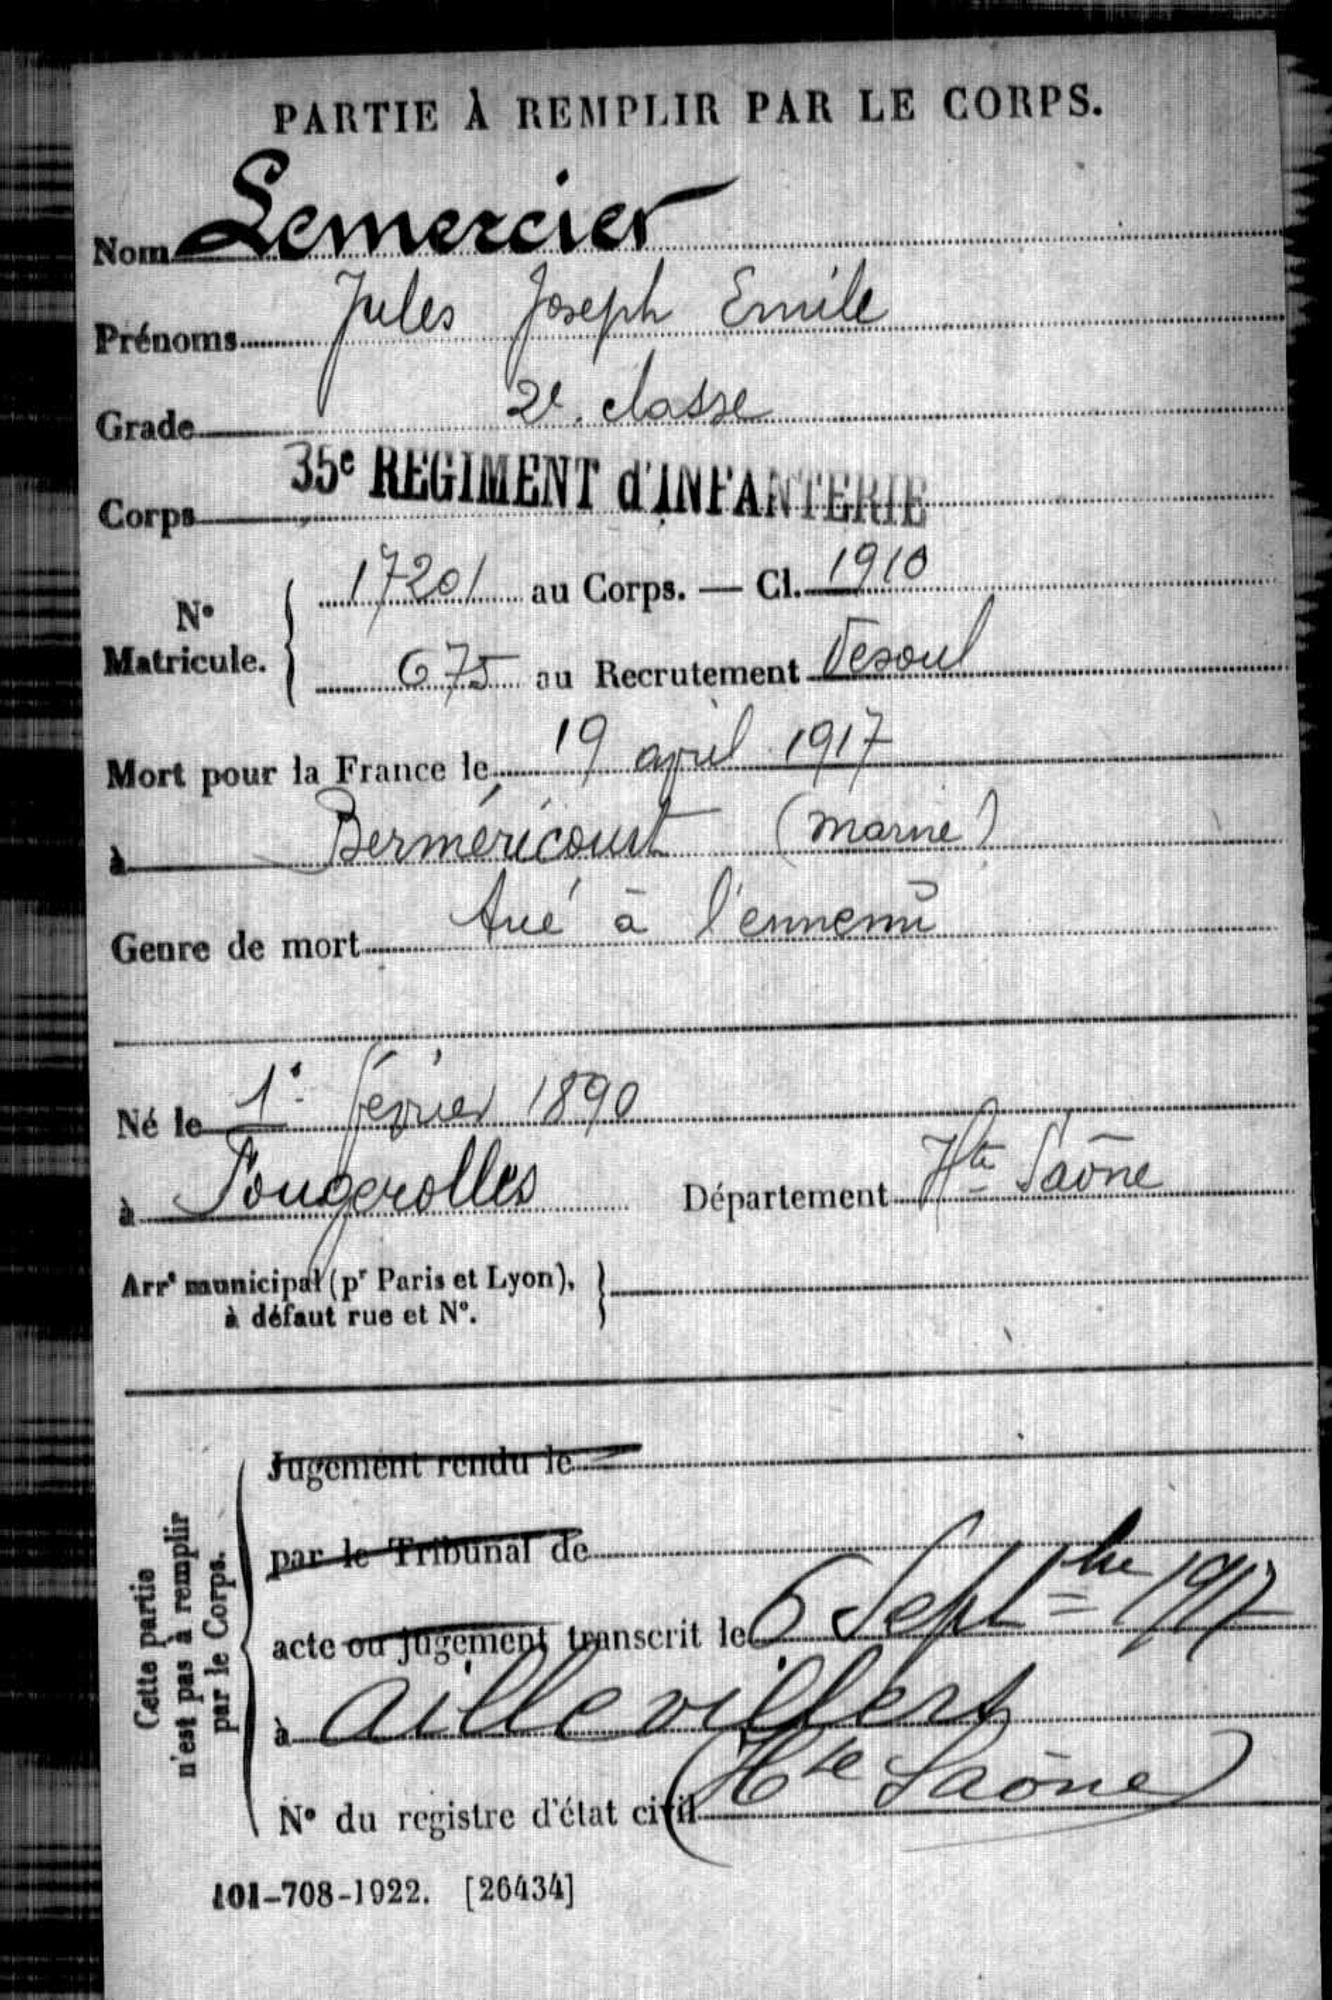 PARTIE À REMPLIR PAR LE CORPS.
Nom Lemercier
Prénoms Jules Joseph Emile
Grade 2e. classe
Corps 35e REGIMENT d'INFANTERIE
N° Matricule. { 17201 au Corps. — Cl. 1910
675 au Recrutement Vesoul
Mort pour la France le 19 avril 1917
à Berméricourt (Marne)
Genre de mort tué à l'ennemi
Né le 1er février 1890
à Fougerolles Département Hte Saône
Arrt municipal (pr Paris et Lyon), }
à défaut rue et N°.
Cette partie
n'est pas à remplir
par le Corps.
Jugement rendu le
par le Tribunal de
acte ou jugement transcrit le 6 Septbre 1917
à Aillevillers
(Hte Saône)
N° du registre d'état civil
101-708-1922. [26434]